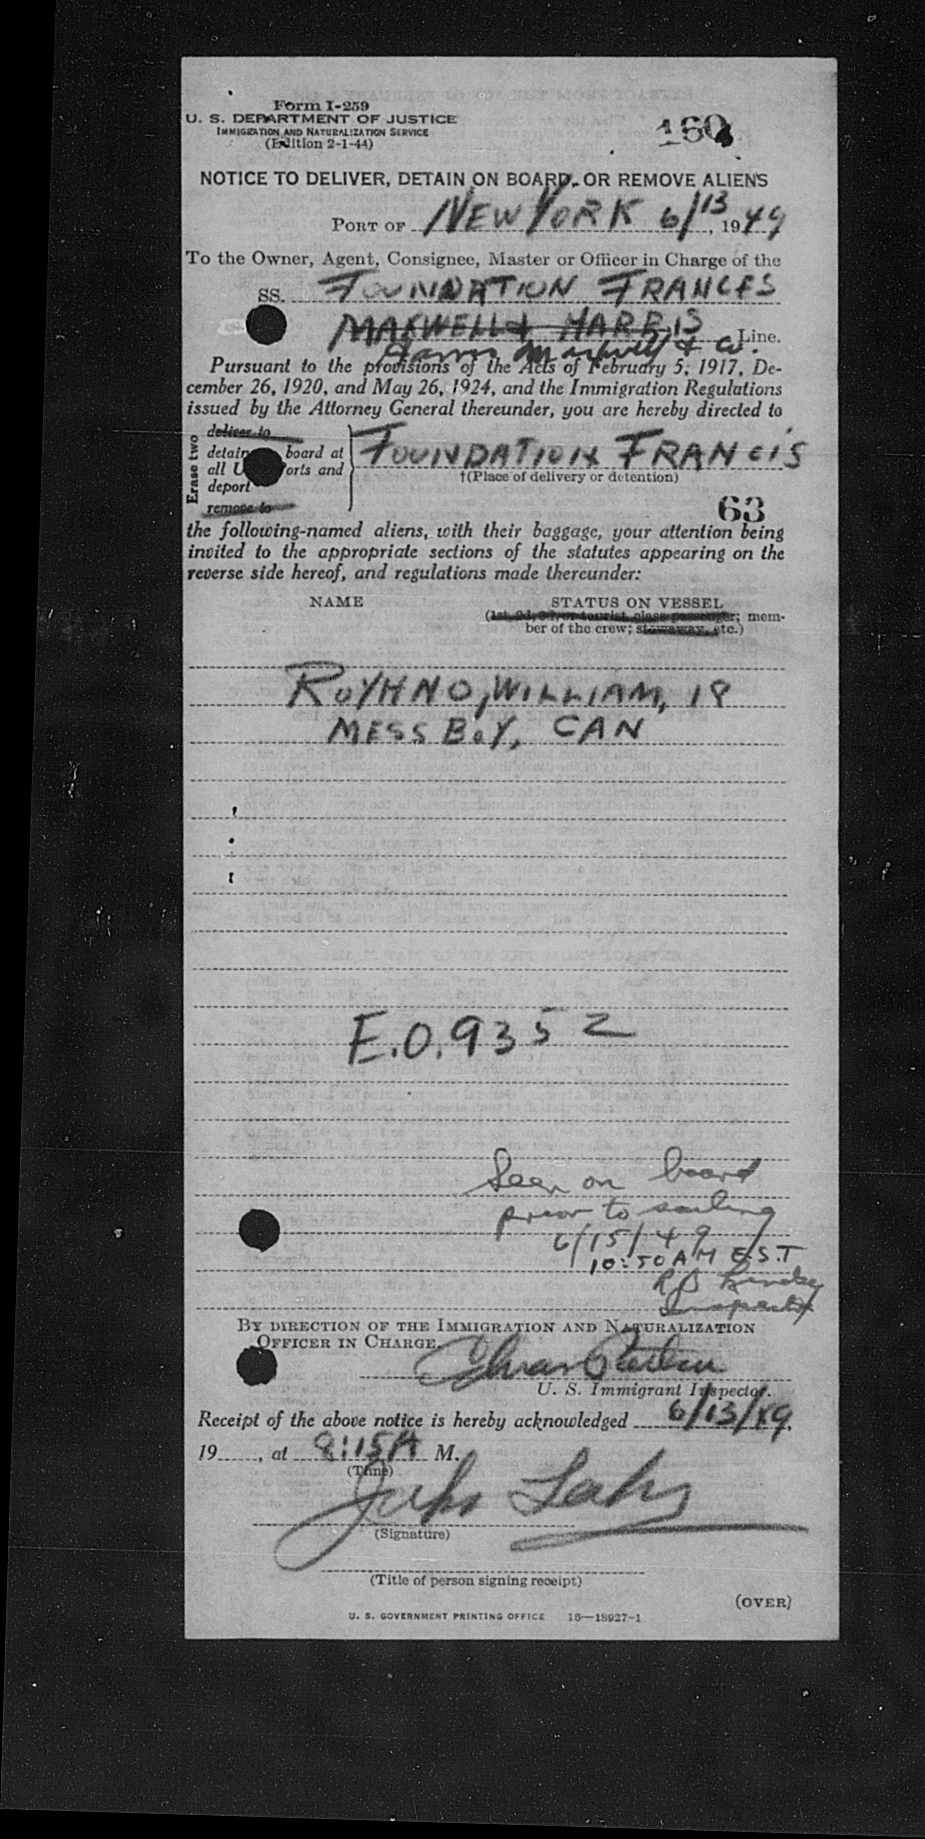 Form I-259
U. S. DEPARTMENT OF JUSTICE
IMMIGRATION AND NATURALIZATION SERVICE
(Edition 2-1-44)
NOTICE TO DELIVER, DETAIN ON BOARD, OR REMOVE ALIENS
PORT OF NEW YORK 6/13, 1949
To the Owner, Agent, Consignee, Master or Officer in Charge of the
SS. FOUNDATION FRANCES
MAXWELL & HARRIS Line.
Maxwell & Co.
Pursuant to the provisions of the Acts of February 5, 1917, De-
cember 26, 1920, and May 26, 1924, and the Immigration Regulations
issued by the Attorney General thereunder, you are hereby directed to
Erase two
deliver to
detain board at
all U orts and
deport
remove to
FOUNDATION FRANCIS
†(Place of delivery or detention)
63
the following-named aliens, with their baggage, your attention being
invited to the appropriate sections of the statutes appearing on the
reverse side hereof, and regulations made thereunder:
NAME STATUS ON VESSEL
(1st, 2d, 3d, or tourist class passenger; mem-
ber of the crew; stowaway, etc.)
ROYHNO, WILLIAM, 18
MESS BOY, CAN
E.O. 9352
Seen on board
prior to sailing
6/15/49
10:50 AM E.S.T
Inspector
BY DIRECTION OF THE IMMIGRATION AND NATURALIZATION
OFFICER IN CHARGE.
U. S. Immigrant Inspector.
Receipt of the above notice is hereby acknowledged 6/13/49,
19 , at 8:15 A M.
(Time)
(Signature)
(Title of person signing receipt)
(OVER)
U. S. GOVERNMENT PRINTING OFFICE 16—18927-1